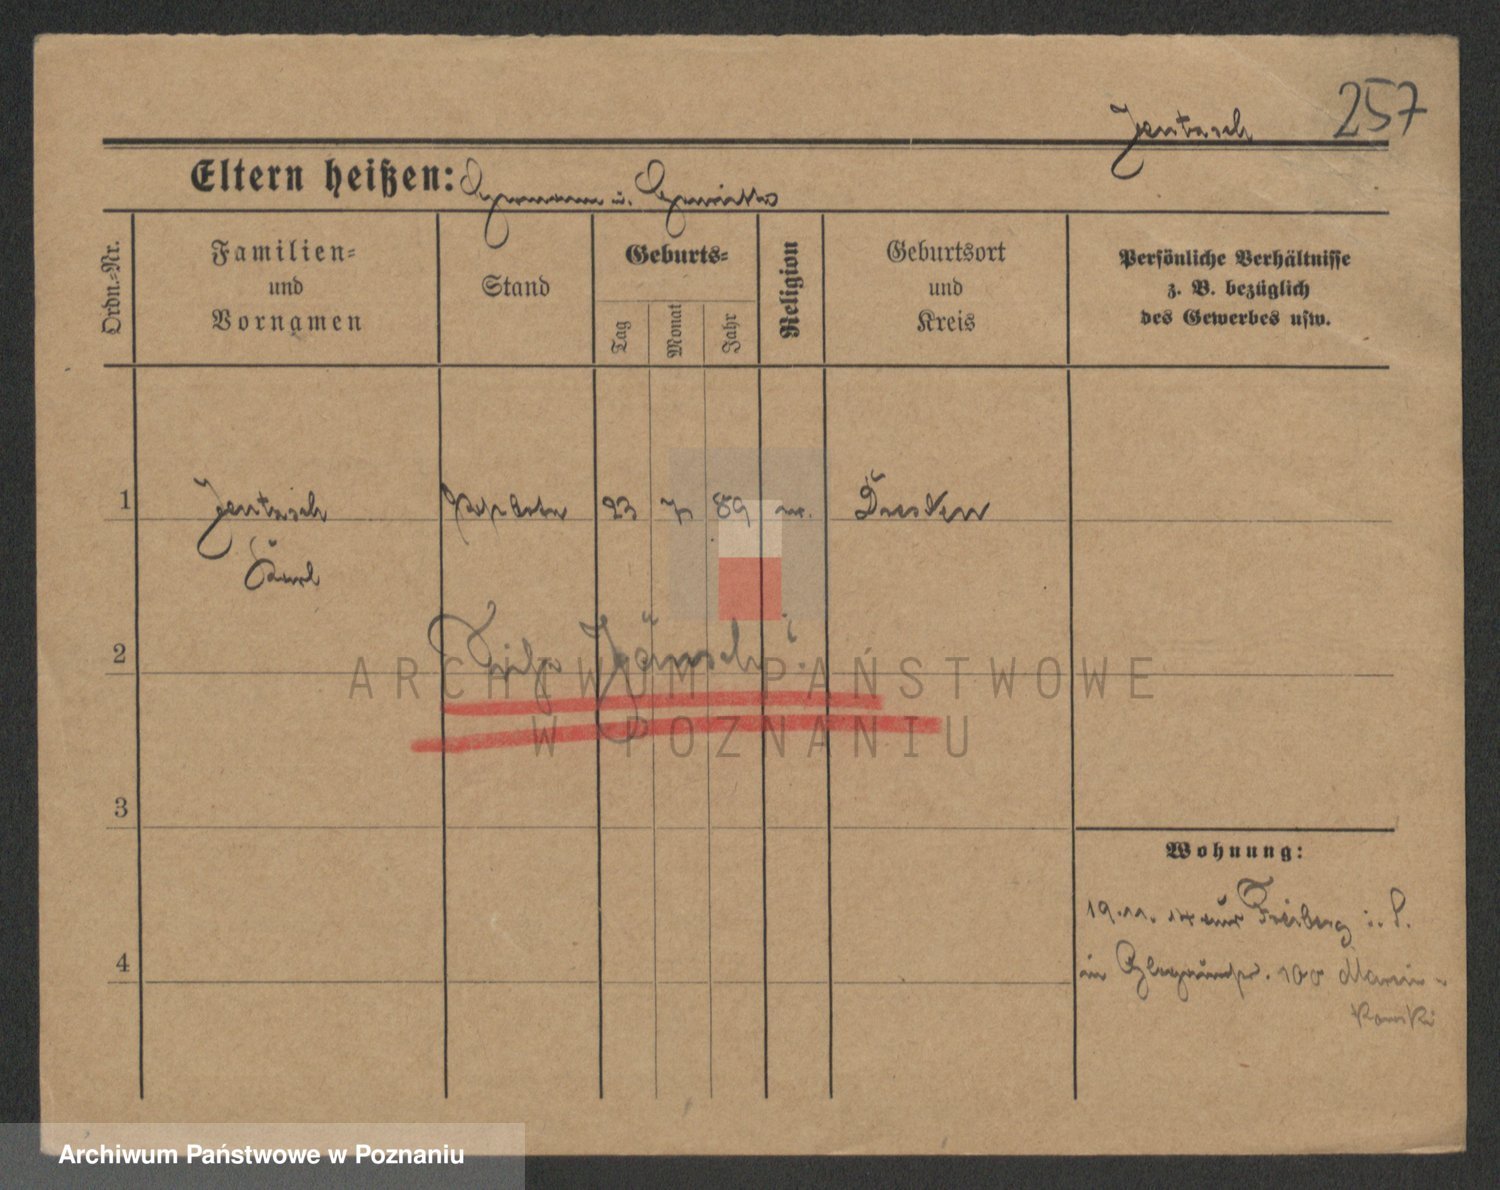 257
Jentzsch
Eltern heißen: Hermann u.
Ordn.-Nr.
Familien-
und
Vornamen
Stand
Geburts-
Tag
Monat
Jahr
Religion
Geburtsort
und
Kreis
Persönliche Verhältnisse
z. B. bezüglich
des Gewerbes usw.
1
Jentzsch 23 7 89 ev. Dresden
Kurl
2
Fritz Jänsch!
3
Wohnung:
19.11. 14 aus Freiberg i. S.
4
in 100 Marcin-
kowski
ARCHIWUM PAŃSTWOWE
W POZNANIU
Archiwum Państwowe w Poznaniu